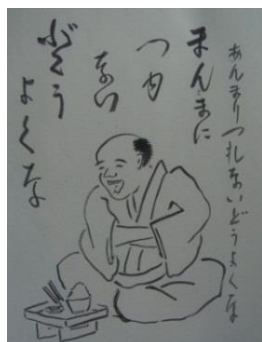 あんまりつれないどうよくな
まんまに
つけ
ない
どくう
よくな